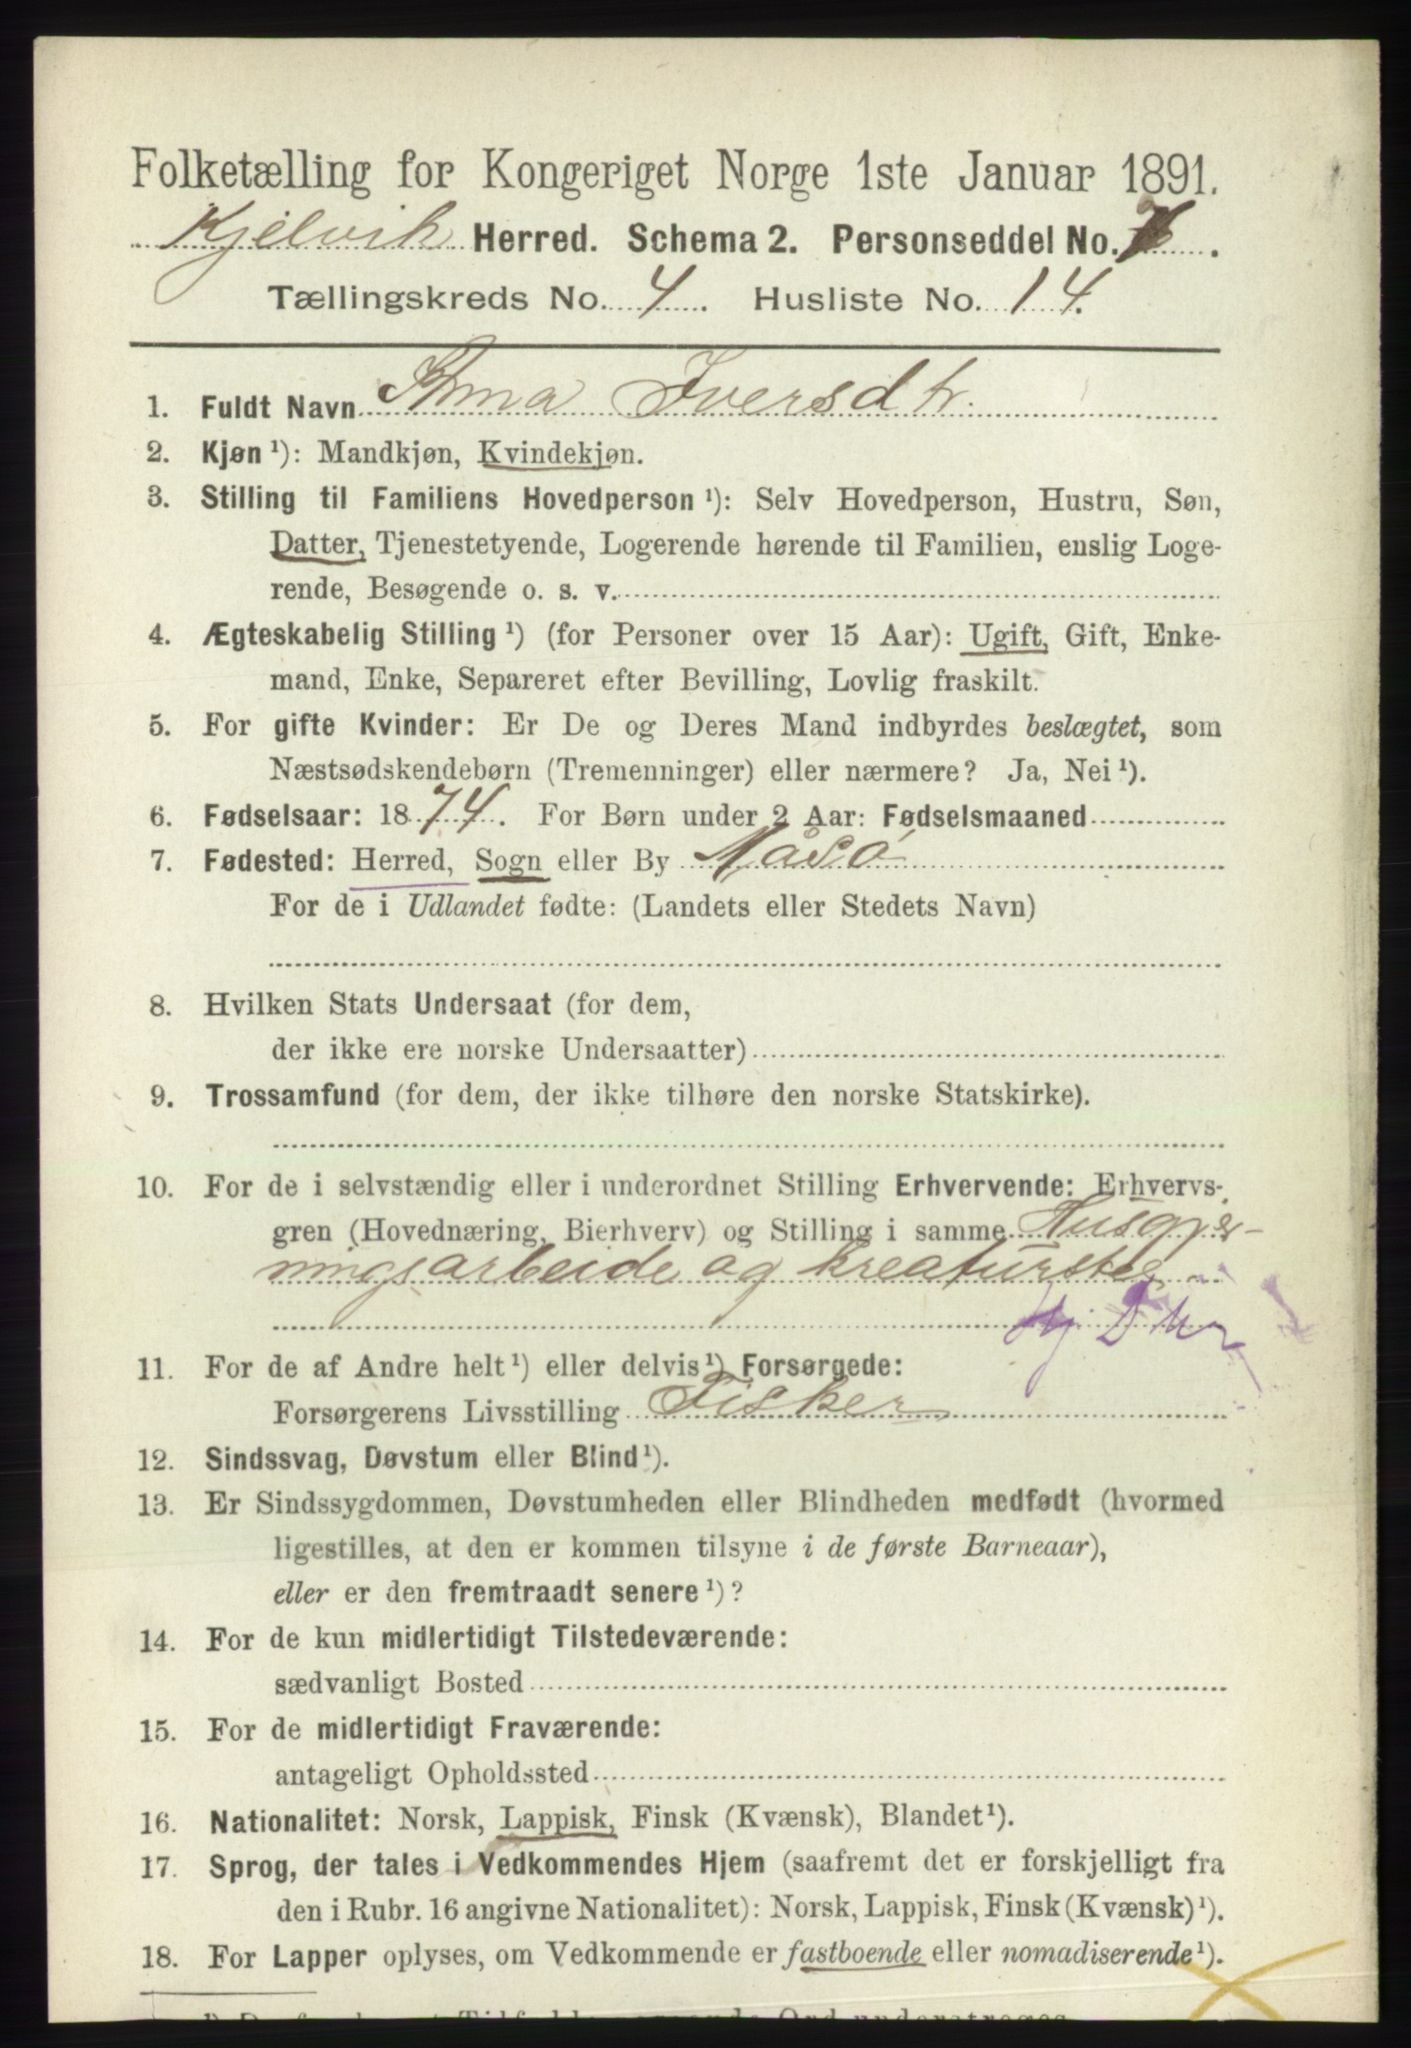 Folketælling for Kongeriget Norge 1ste Januar 1891.
Kjelvik Herred. Schema 2. Personseddel No.
Tællingskreds No. 4. Husliste No. 14.
1. Fuldt Navn Anna Iversdtr.
2. Kjøn ¹): Mandkjøn, Kvindekjøn.
3. Stilling til Familiens Hovedperson ¹): Selv Hovedperson, Hustru, Søn,
Datter, Tjenestetyende, Logerende hørende til Familien, enslig Loge-
rende, Besøgende o. s. v.
4. Ægteskabelig Stilling ¹) (for Personer over 15 Aar): Ugift, Gift, Enke-
mand, Enke, Separeret efter Bevilling, Lovlig fraskilt.
5. For gifte Kvinder: Er De og Deres Mand indbyrdes beslægtet, som
Næstsødskendebørn (Tremenninger) eller nærmere? Ja, Nei ¹).
6. Fødselsaar: 1874. For Børn under 2 Aar: Fødselsmaaned
7. Fødested: Herred, Sogn eller By Måsø
For de i Udlandet fødte: (Landets eller Stedets Navn)
8. Hvilken Stats Undersaat (for dem,
der ikke ere norske Undersaatter)
9. Trossamfund (for dem, der ikke tilhøre den norske Statskirke).
10. For de i selvstændig eller i underordnet Stilling Erhvervende: Erhvervs-
gren (Hovednæring, Bierhverv) og Stilling i samme Husgjer-
ningsarbeide og kreaturstel
11. For de af Andre helt ¹) eller delvis ¹) Forsørgede:
Forsørgerens Livsstilling Fisker
12. Sindssvag, Døvstum eller Blind ¹).
13. Er Sindssygdommen, Døvstumheden eller Blindheden medfødt (hvormed
ligestilles, at den er kommen tilsyne i de første Barneaar),
eller er den fremtraadt senere ¹)?
14. For de kun midlertidigt Tilstedeværende:
sædvanligt Bosted
15. For de midlertidigt Fraværende:
antageligt Opholdssted
16. Nationalitet: Norsk, Lappisk, Finsk (Kvænsk), Blandet ¹).
17. Sprog, der tales i Vedkommendes Hjem (saafremt det er forskjelligt fra
den i Rubr. 16 angivne Nationalitet): Norsk, Lappisk, Finsk (Kvænsk) ¹).
18. For Lapper oplyses, om Vedkommende er fastboende eller nomadiserende ¹).